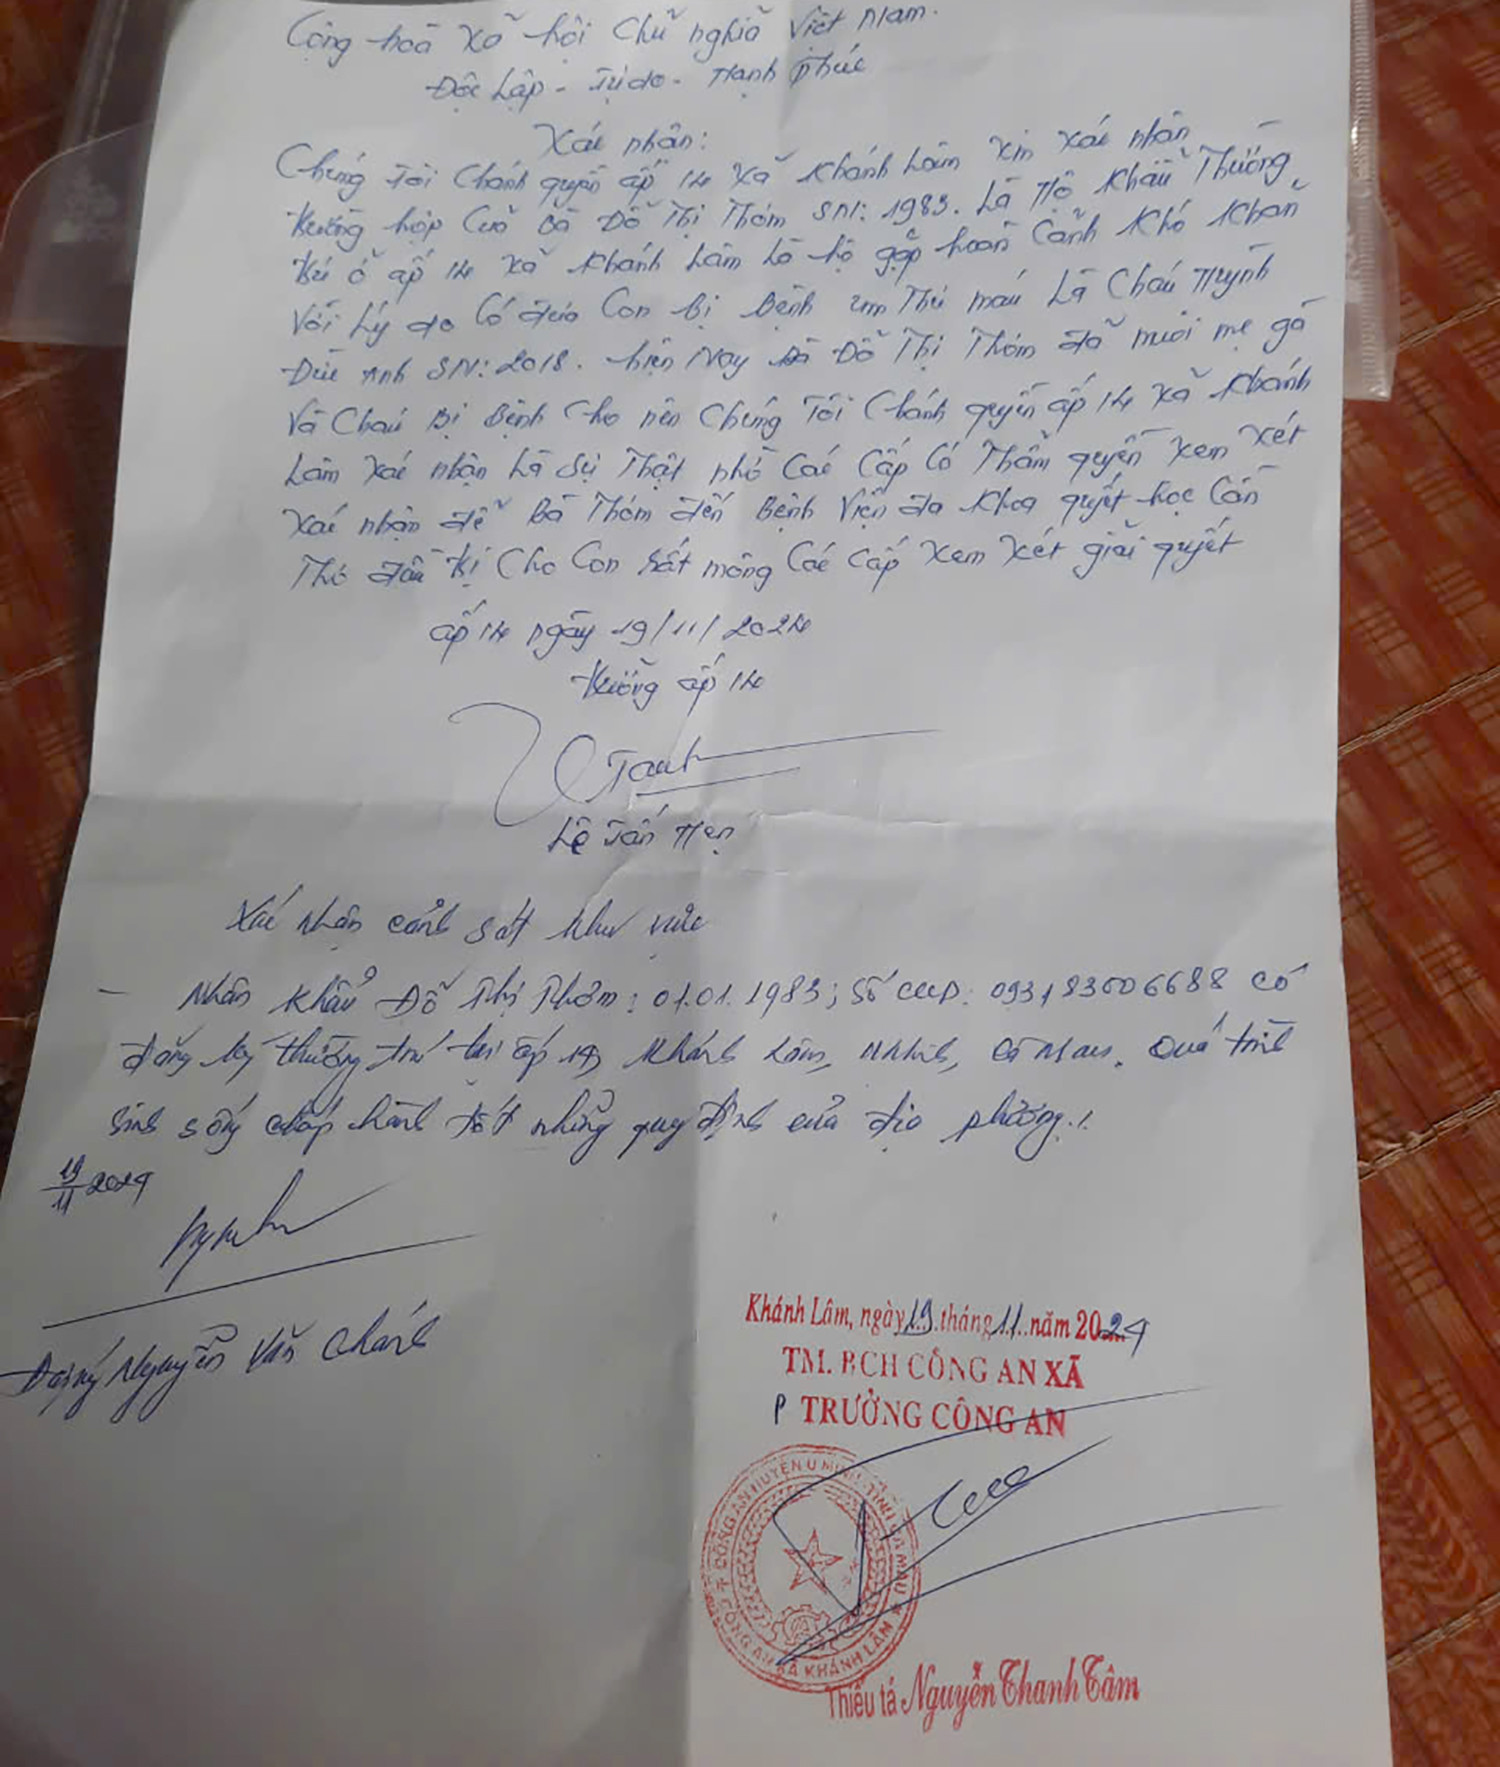 Cộng hoà Xã hội Chủ nghĩa Việt Nam.
Độc Lập - Tự do - Hạnh Phúc
Xác nhân:
Chúng Tôi Chánh quyền ấp 14 Xã Khánh Lâm xin xác nhận
trường hợp Cuả Bà Đỗ Thị Thơm SN: 1983. Là Hộ Khẩu Thường
trú ở ấp 14 Xã Khánh Lâm Là hộ gặp hoàn Cảnh Khó Khăn
Với Lý do Có đứa Con Bị Bệnh ung Thư máu Là Cháu Huỳnh
Đức Anh SN: 2018. hiện Nay Bà Đỗ Thị Thơm đã nuôi mẹ gà
Và Cháu Bị Bệnh Cho nên Chúng Tôi Chánh quyền ấp 14 Xã Khánh
Lâm Xác nhận Là Sự Thật nhờ Các Cấp Có Thẩm quyền Xem Xét
Xác nhận để Bà Thơm đến Bệnh Viện đa Khoa quyết học Cần
Thơ điều trị Cho Con Rất mông Các Cấp Xem Xét giải quyết
ấp 14 ngày 19/11/2024
trưởng ấp 14
Lê Tấn Hẹn
Xác nhận cảnh sát khu vực
- Nhân khẩu Đỗ Thị Thơm: 01.01.1983; Số CCCD: 093183006688 có
đăng ký thường trú tại ấp 14, Khánh Lâm, U Minh, Cà Mau. Quá trình
sinh sống chấp hành tốt những quy định của địa phương./.
19/11 2024
Đại úy Nguyễn Văn Chánh
Khánh Lâm, ngày 19 tháng 11 năm 2024
TM. BCH CÔNG AN XÃ
P TRƯỞNG CÔNG AN
CÔNG AN HUYỆN U MINH - TỈNH CÀ MAU
CÔNG AN XÃ KHÁNH LÂM
Thiếu tá Nguyễn Thanh Tâm